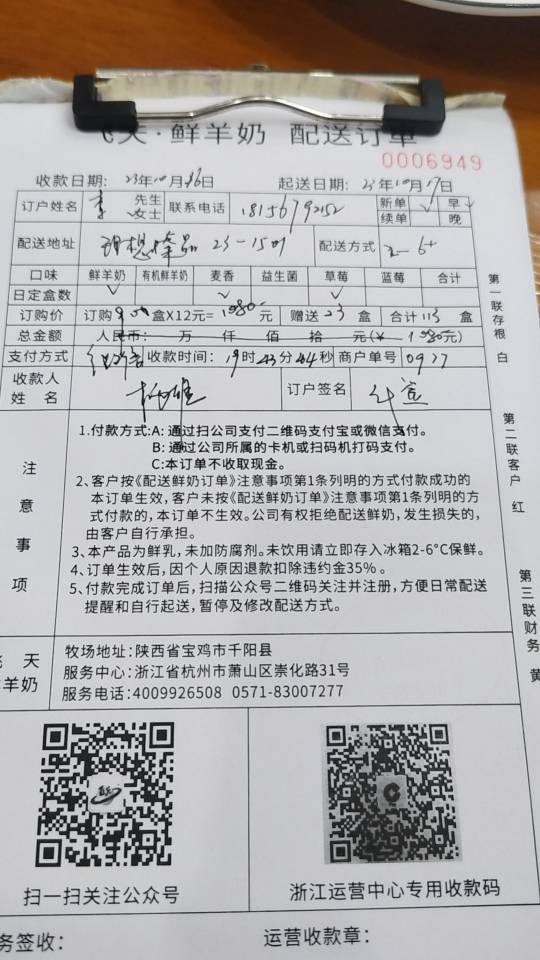 飞天·鲜羊奶 配送订单
0006949
收款日期：23年10月16日 起送日期：23年10月17日
订户姓名 李 先生 女士 联系电话 新单 ✓ 早 ✓
续单 晚
配送地址 配送方式
口味 鲜羊奶 有机鲜羊奶 麦香 益生菌 草莓 蓝莓 合计
日定盒数 ✓ ✓ ✓
订购价 订购90盒X12元=1080元 赠送23盒 合计113盒
总金额 人民币： 万 仟 佰 拾 元(￥ 1080元)
支付方式 收款时间：19时43分44秒 商户单号 0977
收款人
姓 名
订户签名
注意事项
1.付款方式:A: 通过扫公司支付二维码支付宝或微信支付。
B: 通过公司所属的卡机或扫码机打码支付。
C:本订单不收取现金。
2、客户按《配送鲜奶订单》注意事项第1条列明的方式付款成功的
本订单生效，客户未按《配送鲜奶订单》注意事项第1条列明的方
式付款的，本订单不生效。公司有权拒绝配送鲜奶，发生损失的，
由客户自行承担。
3、本产品为鲜乳，未加防腐剂。未饮用请立即存入冰箱2-6°C保鲜。
4、订单生效后，因个人原因退款扣除违约金35%。
5、付款完成订单后，扫描公众号二维码关注并注册，方便日常配送
提醒和自行起送，暂停及修改配送方式。
天
羊奶
牧场地址：陕西省宝鸡市千阳县
服务中心：浙江省杭州市萧山区崇化路31号
服务电话：4009926508 0571-83007277
扫一扫关注公众号
浙江运营中心专用收款码
务签收：
运营收款章：
第一联存根 白
第二联客户 红
第三联财务 黄